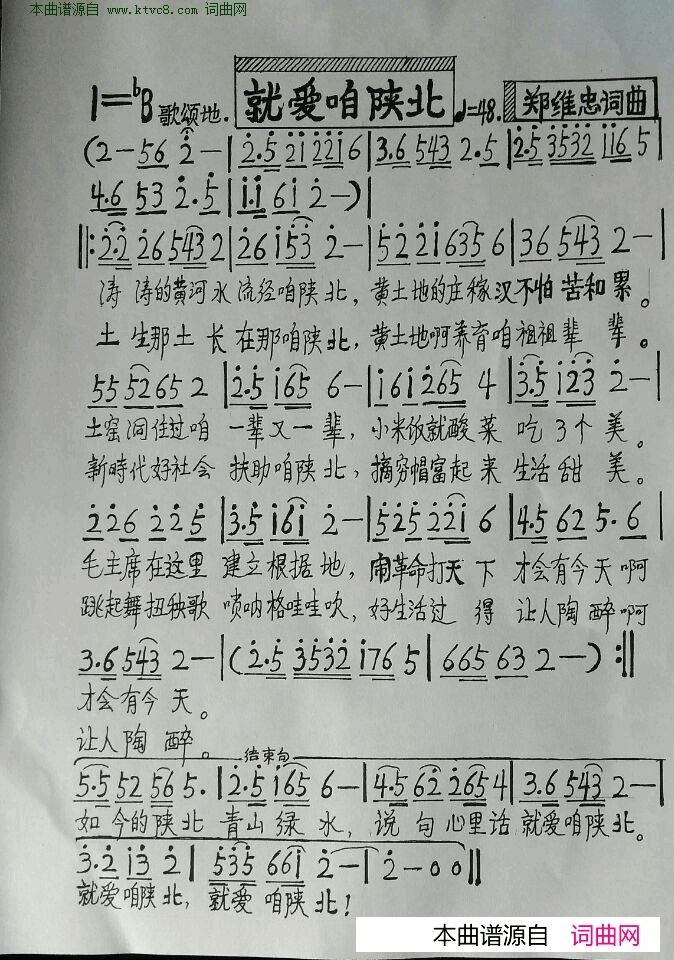 本曲谱源自 www.ktvc8.com 词曲网
1=♭B 歌颂地. 就爱咱陕北 ♩=48. 郑维忠词曲
(2- 56 2̇- | 2̇.5 2̇1̇ 2̇2̇1̇6 | 3.6 543 2.5 | 2̇.5 3̇5̇3̇2̇ 1̇1̇6 5
4.6 53 2̇.5 | 1̇.1̇ 61̇ 2̇-) |
‖: 2̇.2̇ 2̇6 543 2 | 2̇6 1̇53̇ 2̇- | 52̇ 2̇1̇ 635 6 | 36 543 2- |
涛涛的黄河水流经咱陕北，黄土地的庄稼汉不怕苦和累。
土生那土长在那咱陕北，黄土地啊养育咱祖祖辈辈。
55 5265 2 | 2̇.5 1̇65 6- | 1̇61̇ 2̇65 4 | 3̇.5 1̇2̇3̇ 2̇- |
土窑洞住过咱一辈又一辈，小米饭就酸菜吃了个美。
新時代好社会扶助咱陕北，摘穷帽富起来生活甜美。
2̇2̇6 2̇2̇5 | 3̇.5 1̇61̇ 2̇- | 52̇5 2̇2̇1̇ 6 | 4.5 62 5.6 |
毛主席在这里建立根据地，闹革命打天下才会有今天啊
跳起舞扭秧歌唢呐格哇哇吹，好生活过得让人陶醉啊
3.6 543 2- | (2̇.5 3̇5̇3̇2̇ 1̇76 5 | 665 63 2-) :‖
才会有今天。
让人陶醉。
结束句
5.5 52 56 5. | 2̇.5 1̇65 6- | 4.5 62̇ 2̇65 4 | 3.6 543 2- |
如今的陕北青山绿水，说句心里话就爱咱陕北。
3̇.2̇ 1̇3̇ 2̇ | 535 661̇ 2̇- | 2̇-00 ‖
就爱咱陕北，就爱咱陕北！
本曲谱源自 词曲网